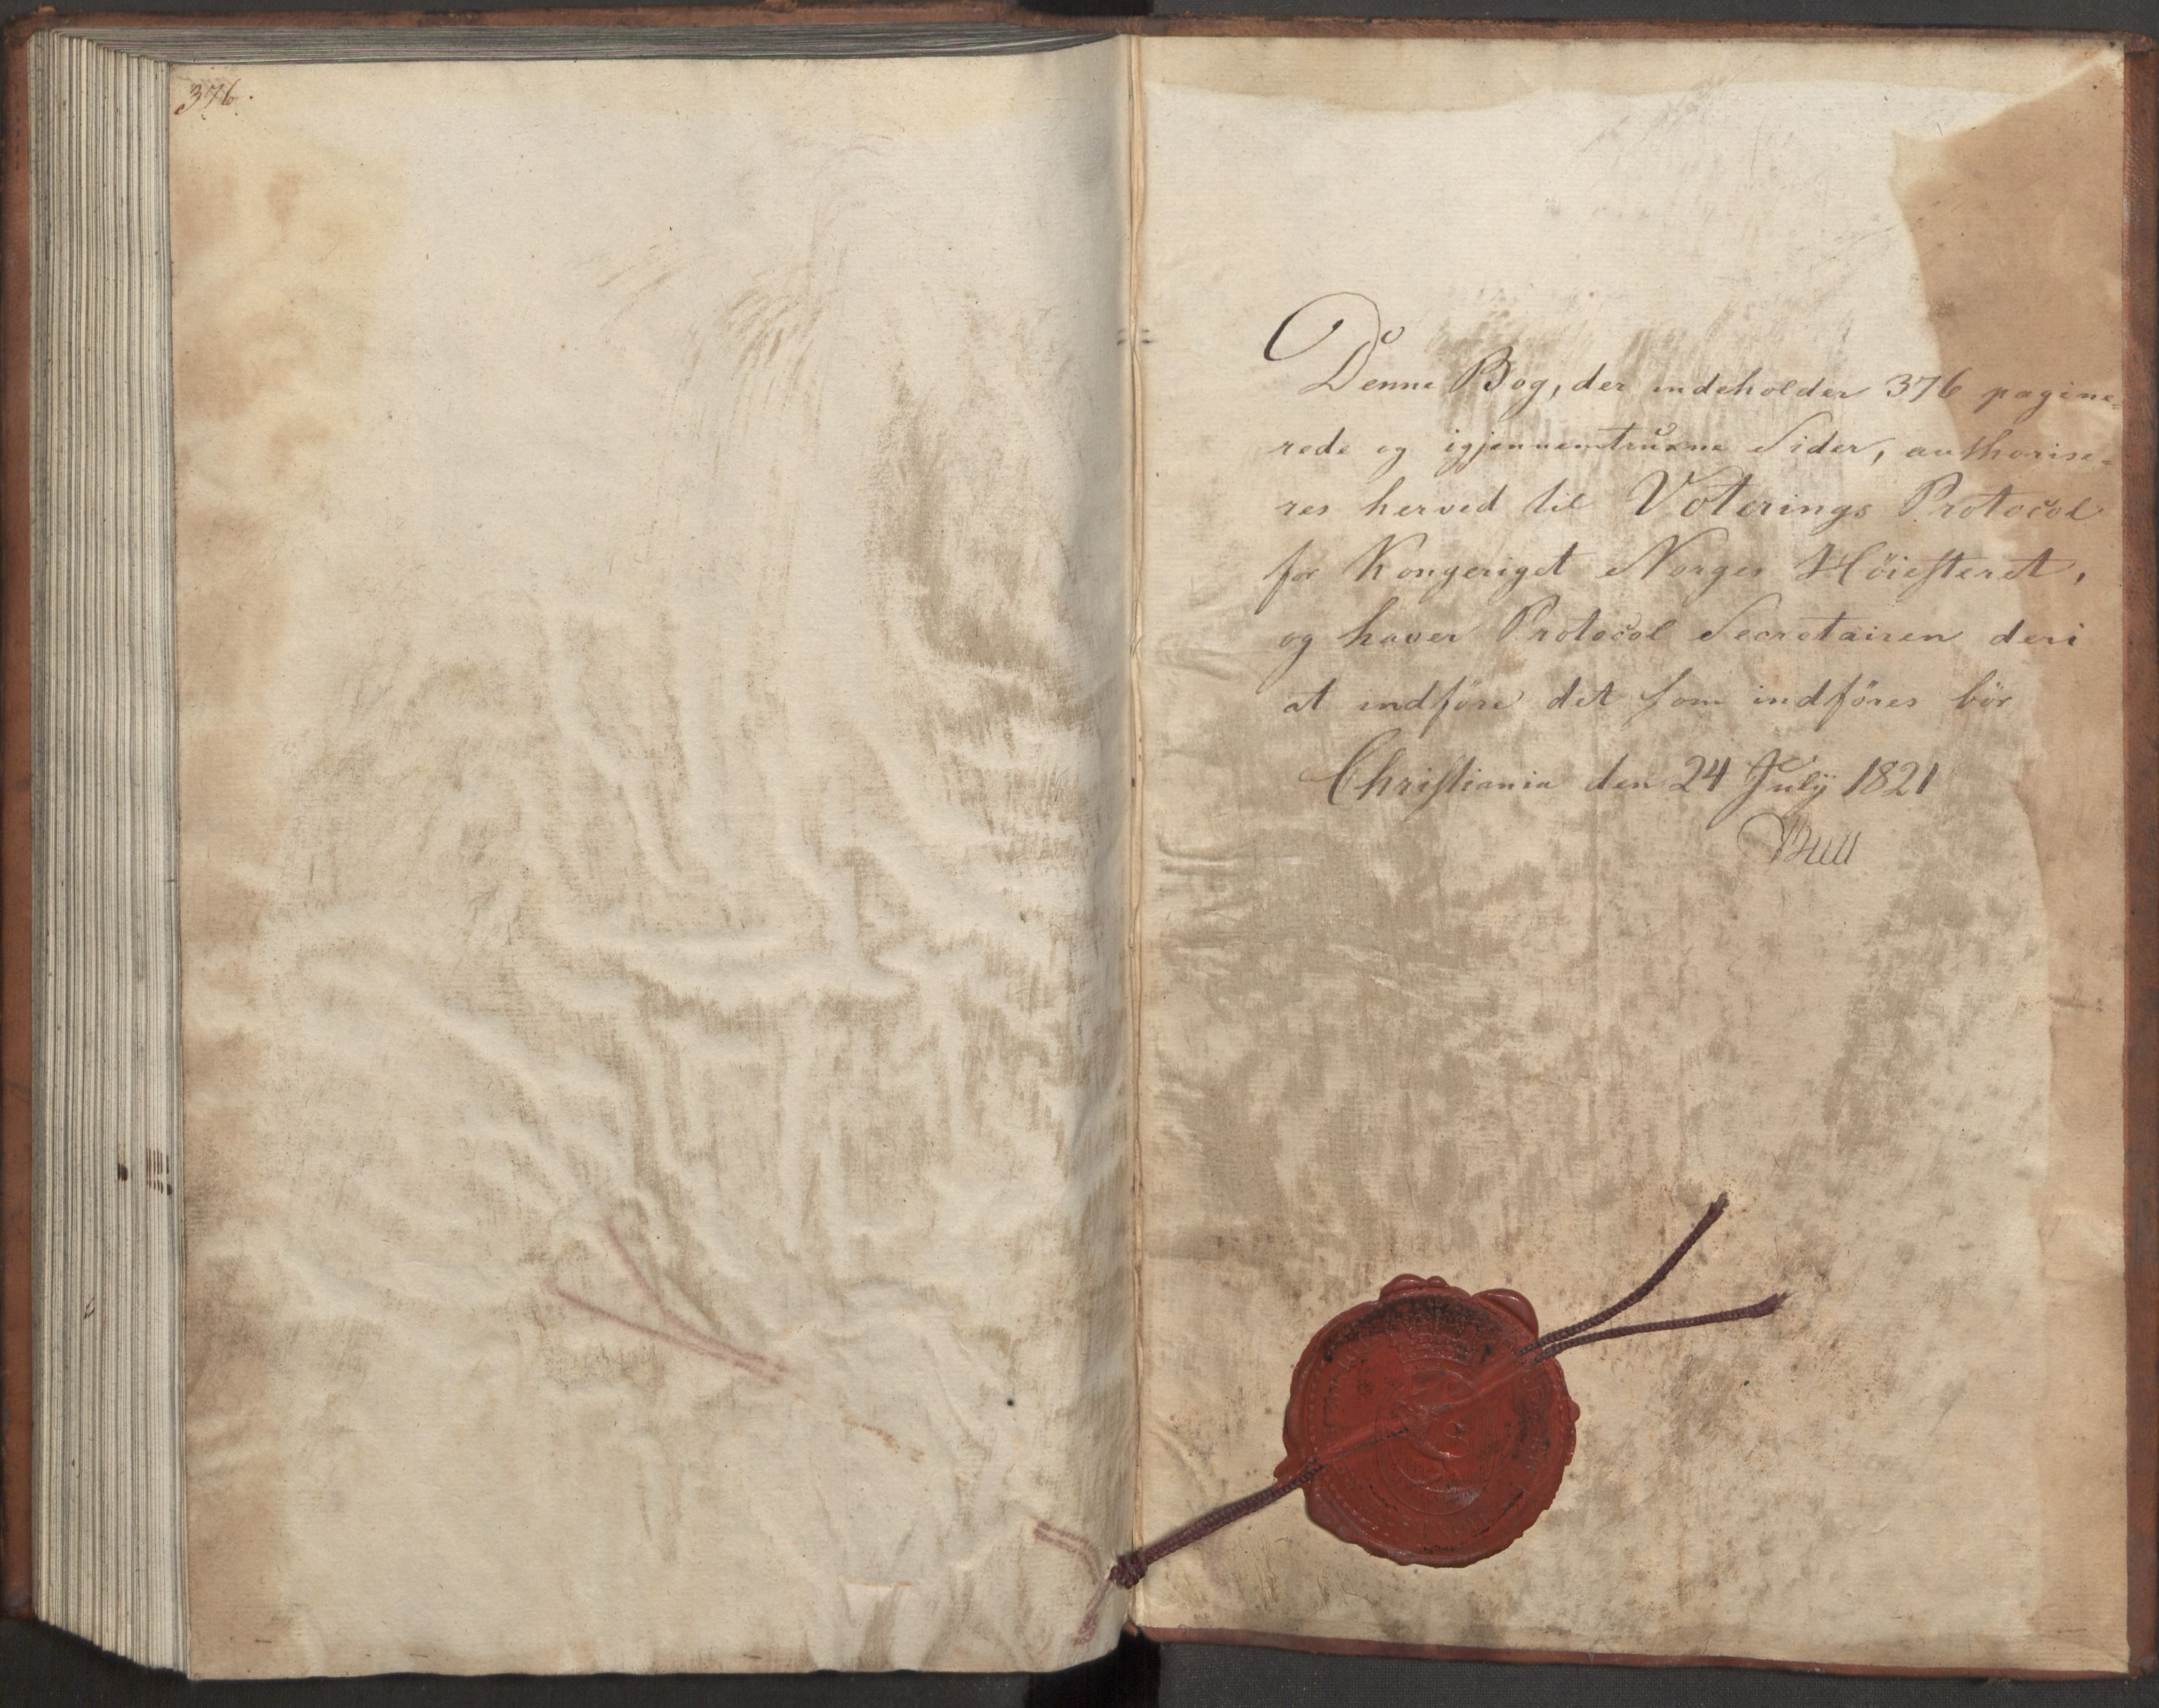 376.
Denne Bog, der indeholder 376 pagine=
rede og igjennemtrukne Sider, authorise=
res herved til Voterings Protocol
for Kongeriget Norges Höiesteret,
og haver Protocol Secretairen deri
at indföre det som indföres bör
Christiania den 24 July 1821
Bull